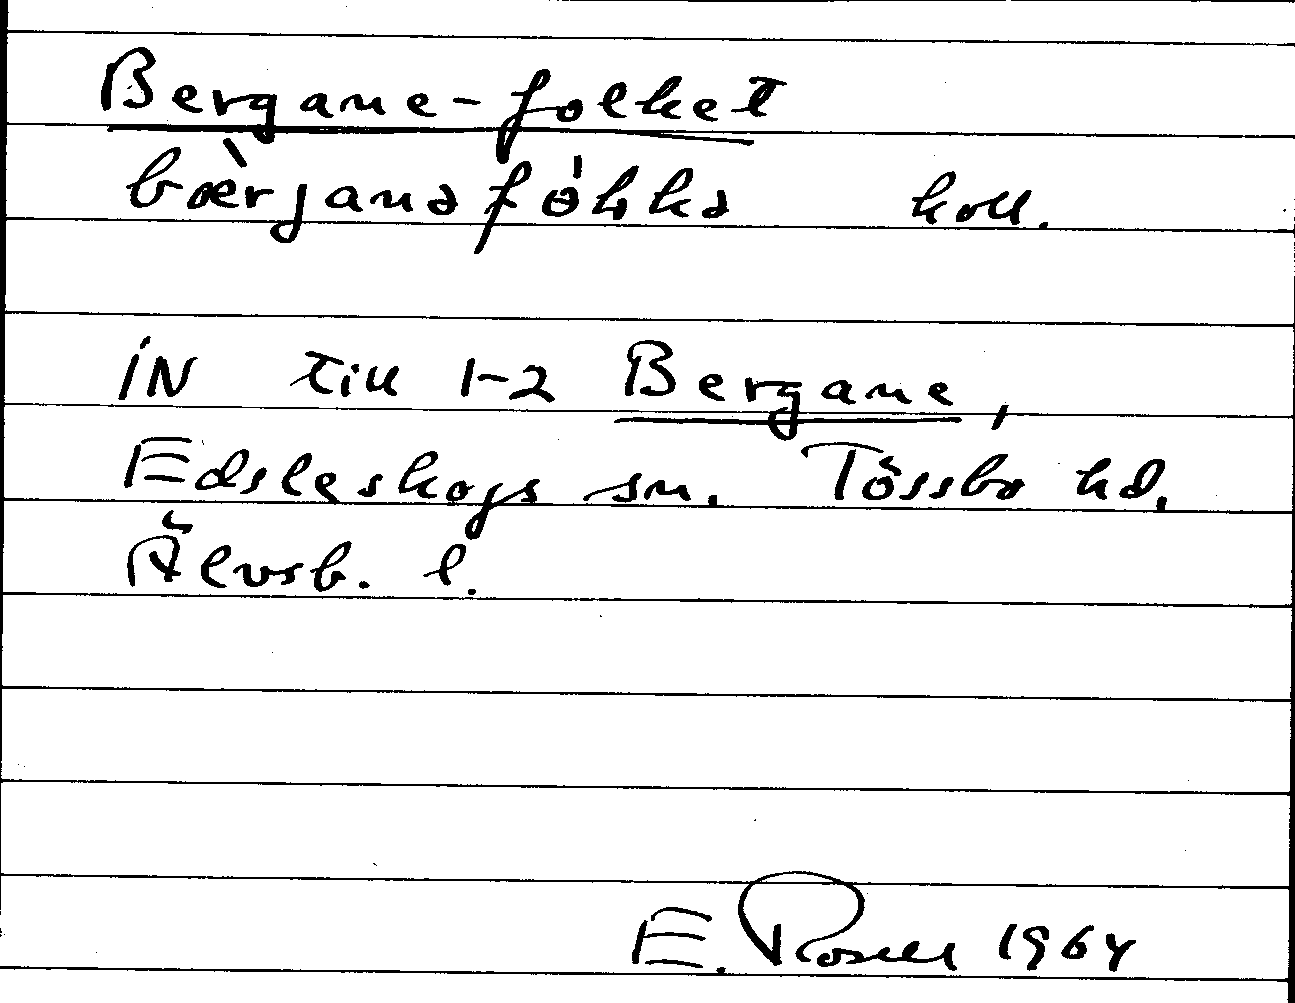 Bergane-folket
bæ̀rjanəfɵ́lkə koll.
iN till 1-2 Bergane,
Edsleskogs sn. Tössbo hd.
Älvsb. l.
E. Rosell 1964